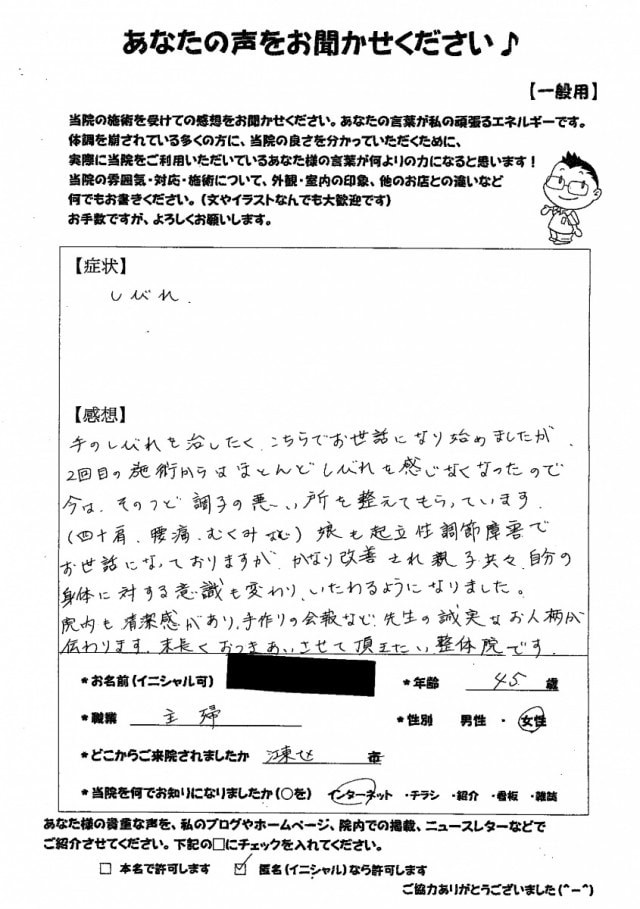 あなたの声をお聞かせください♪
【一般用】
当院の施術を受けての感想をお聞かせください。あなたの言葉が私の頑張るエネルギーです。
体調を崩されている多くの方に、当院の良さを分かっていただくために、
実際に当院をご利用いただいているあなた様の言葉が何よりの力になると思います！
当院の雰囲気・対応・施術について、外観・室内の印象、他のお店との違いなど
何でもお書きください。（文やイラストなんでも大歓迎です）
お手数ですが、よろしくお願いします。
【症状】
しびれ.
【感想】
手のしびれを治したく、こちらでお世話になり始めましたが、
2回目の施術からはほとんどしびれを感じなくなったので
今は、そのつど調子の悪い所を整えてもらっています.
（四十肩、腰痛、むくみなど）娘も起立性調節障害で
お世話になっておりますが、かなり改善され親子共々、自分の
身体に対する意識も変わり、いたわるようになりました。
院内も清潔感があり、手作りの会報など、先生の誠実なお人柄が
伝わります. 末長くおつきあいさせて頂きたい整体院です.
*お名前（イニシャル可）
*年齢 45 歳
*職業 主婦
*性別 男性 ・ 女性
*どこからご来院されましたか 江東区 市
*当院を何でお知りになりましたか（○を） インターネット ・チラシ ・紹介 ・看板 ・雑誌
あなた様の貴重な声を、私のブログやホームページ、院内での掲載、ニュースレターなどで
ご紹介させてください。下記の□にチェックを入れてください。
□ 本名で許可します ☑ 匿名（イニシャル）なら許可します
ご協力ありがとうございました（^ー^）